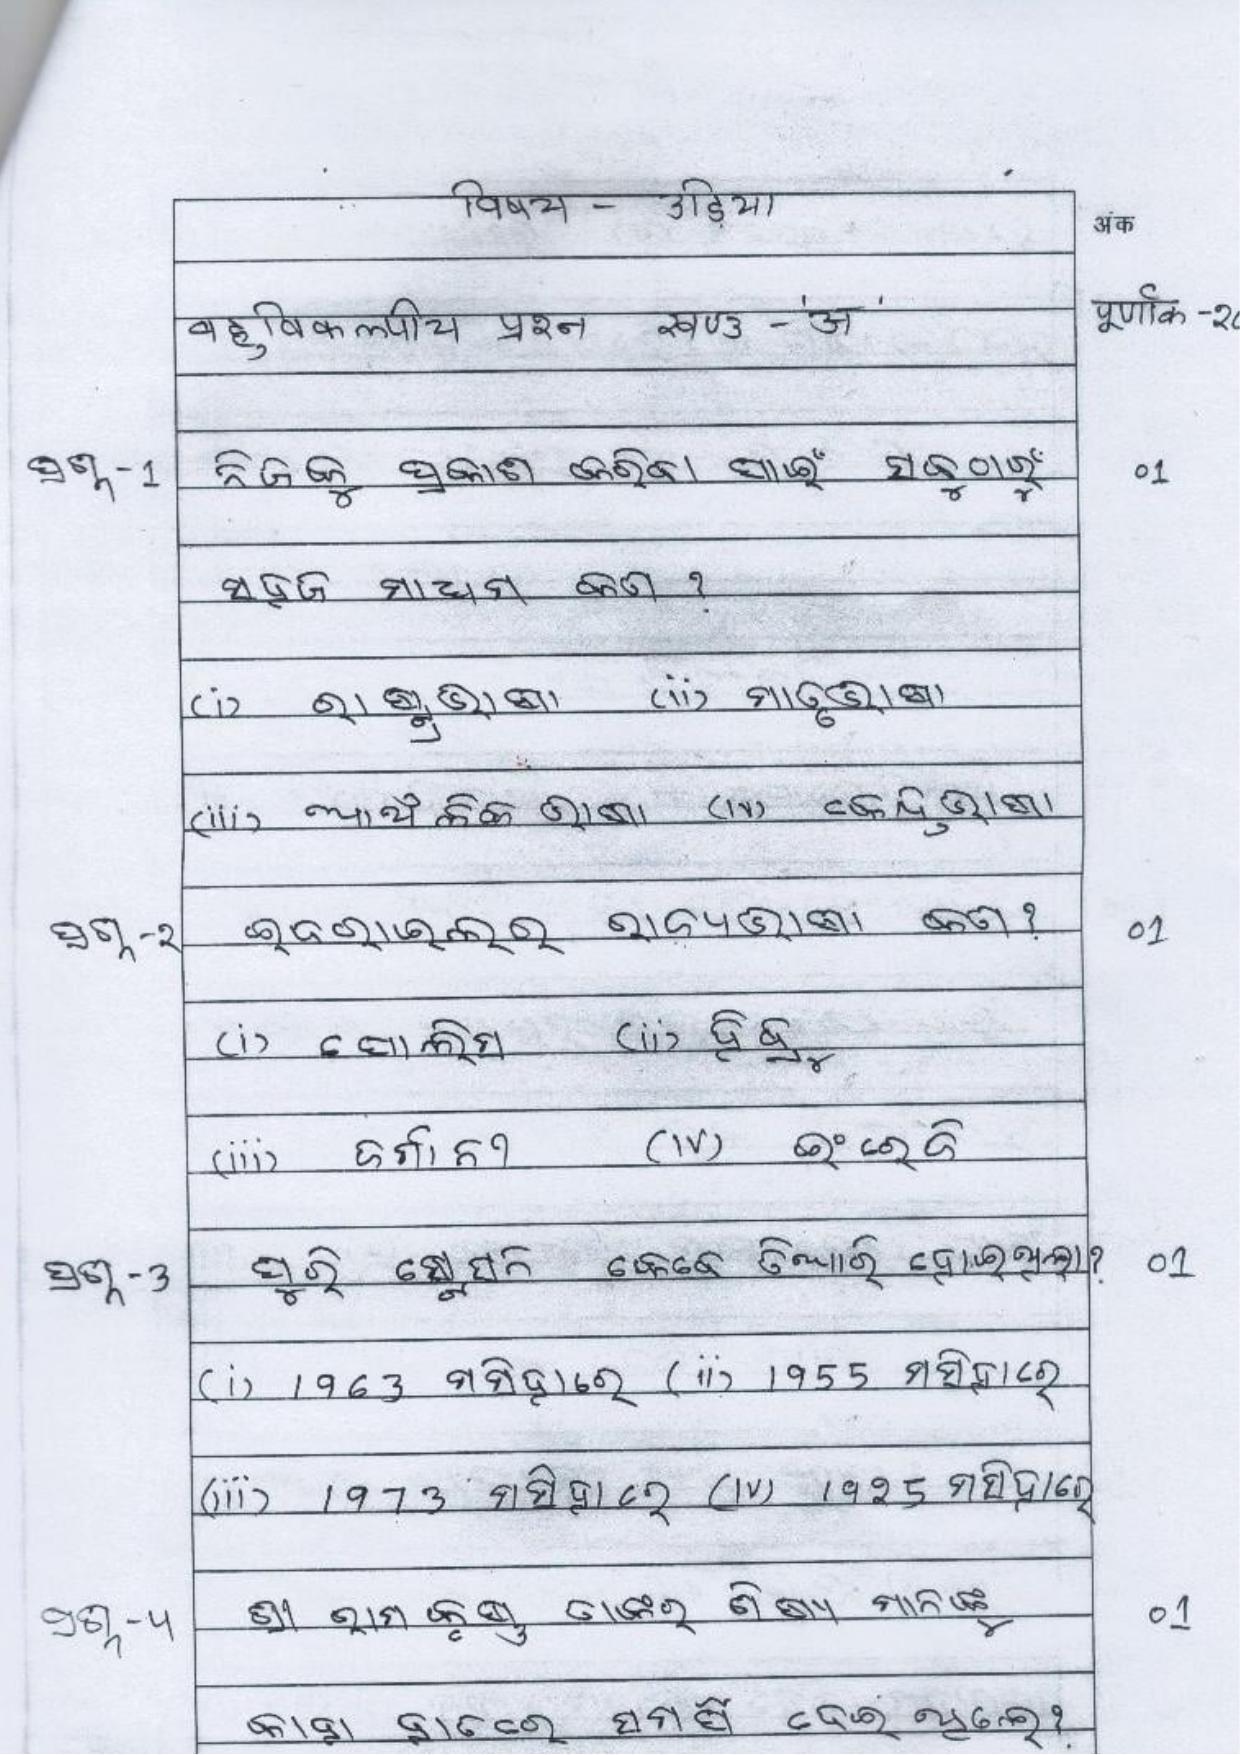 विषय - उड़िया
अंक
बहुविकल्पीय प्रश्न खण्ड - 'अ'
पूर्णांक -२०
ପ୍ରଶ୍ନ -1 ନିଜକୁ ପ୍ରକାଶ କରିବା ପାଇଁ ସବୁଠାରୁଁ 01
ସହଜ ମାଧ୍ୟମ କେଣ ?
(i) ରାଷ୍ଟ୍ରଭାଷା (ii) ମାତୃଭାଷା
(iii) ଆର୍ଥନିକ ଭାଷା (iv) କେନ୍ଦ୍ରଭାଷା
ପ୍ରଶ୍ନ -२ ଇଜରାଇଲର ରାଜ୍ୟଭାଷା କେଣ ? 01
(i) ପୋଲିସ (ii) ହିବ୍ରୁ
(iii) ଜର୍ମାନୀ (iv) ଇଂରେଜି
ପ୍ରଶ୍ନ -3 ପୁରି ଷ୍ଟେସନ କେବେ ତିଆରି ହୋଇଥିଲା ? 01
(i) 1963 ମସିହାରେ (ii) 1955 ମସିହାରେ
(iii) 1973 ମସିହାରେ (iv) 1925 ମସିହାରେ
ପ୍ରଶ୍ନ -४ ଶ୍ରୀ ରାମକୃଷ୍ଣ ତାଙ୍କର ଶିଷ୍ୟ ମାନଙ୍କୁ 01
କାହା ହାତରେ ସମର୍ପି ଦେଇ ଥିଲେ ?